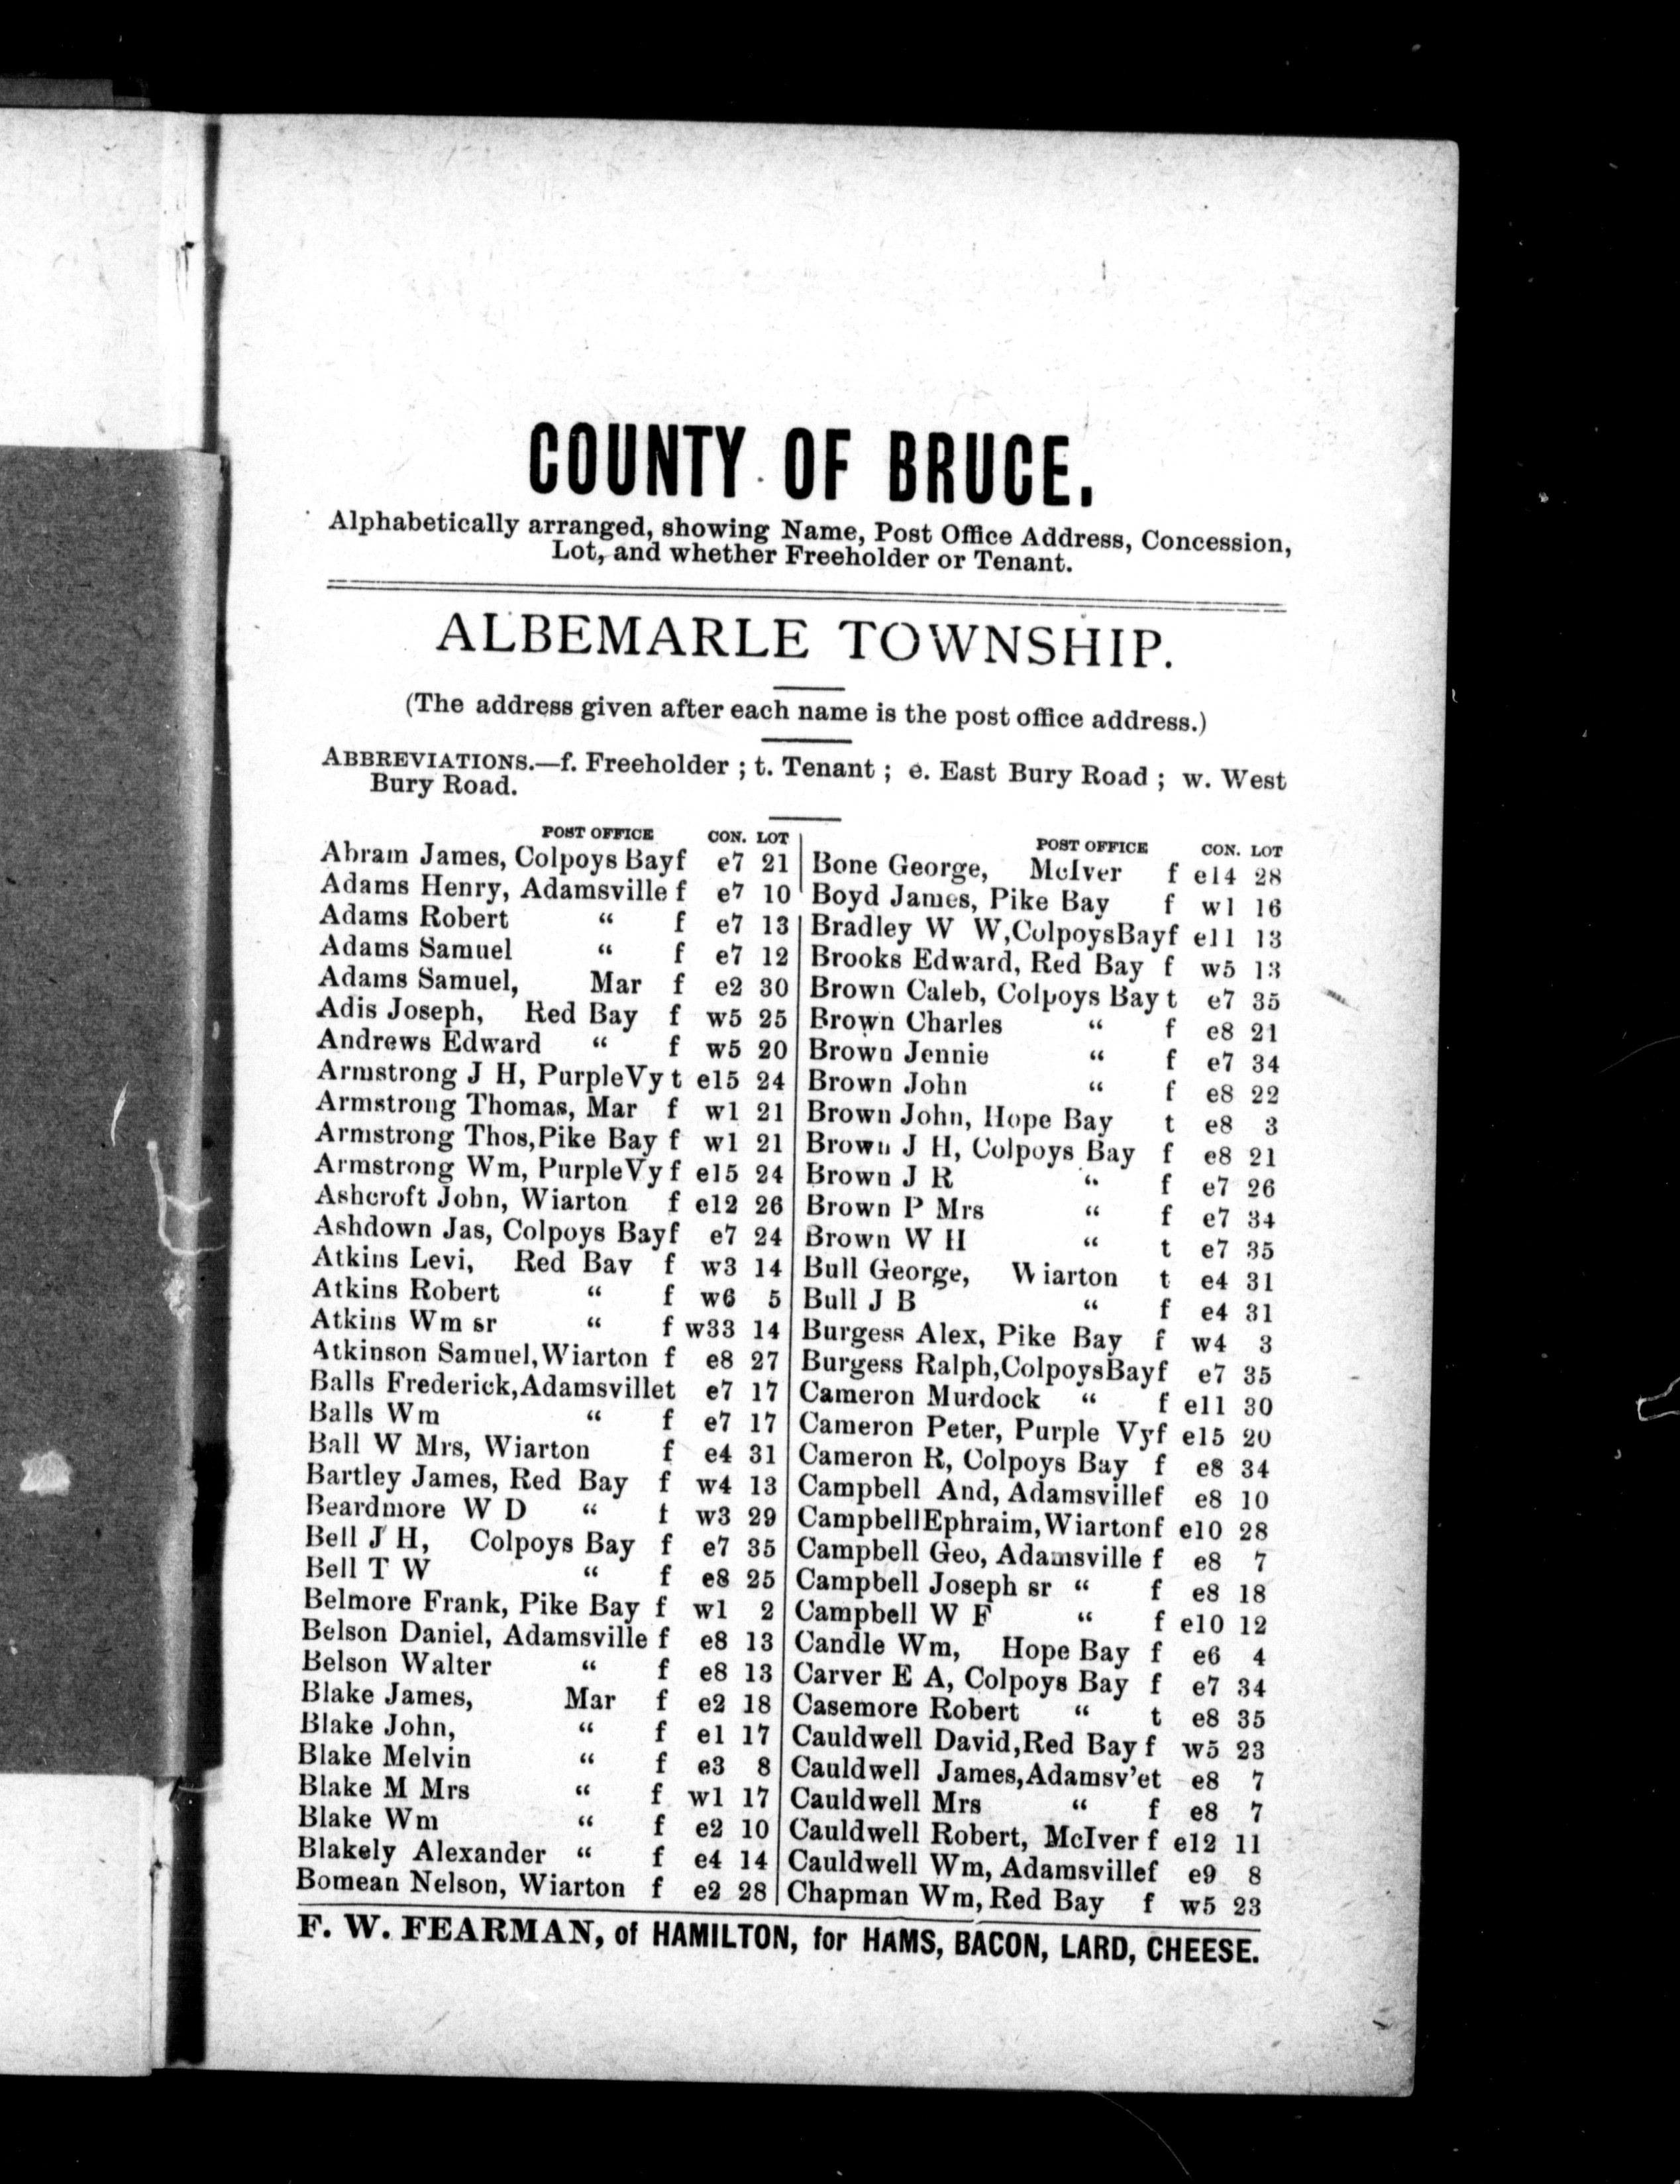 COUNTY OF BRUCE.
Alphabetically arranged, showing Name, Post Office Address, Concession,
Lot, and whether Freeholder or Tenant.
ALBEMARLE TOWNSHIP.
(The address given after each name is the post office address.)
ABBREVIATIONS.—f. Freeholder ; t. Tenant ; e. East Bury Road ; w. West
Bury Road.
POST OFFICE CON. LOT
Abram James, Colpoys Bayf e7 21
Adams Henry, Adamsville f e7 10
Adams Robert “ f e7 13
Adams Samuel “ f e7 12
Adams Samuel, Mar f e2 30
Adis Joseph, Red Bay f w5 25
Andrews Edward “ f w5 20
Armstrong J H, PurpleVy t e15 24
Armstrong Thomas, Mar f w1 21
Armstrong Thos,Pike Bay f w1 21
Armstrong Wm, PurpleVy f e15 24
Ashcroft John, Wiarton f e12 26
Ashdown Jas, Colpoys Bayf e7 24
Atkins Levi, Red Bay f w3 14
Atkins Robert “ f w6 5
Atkins Wm sr “ f w33 14
Atkinson Samuel,Wiarton f e8 27
Balls Frederick,Adamsvillet e7 17
Balls Wm “ f e7 17
Ball W Mrs, Wiarton f e4 31
Bartley James, Red Bay f w4 13
Beardmore W D “ t w3 29
Bell J H, Colpoys Bay f e7 35
Bell T W “ f e8 25
Belmore Frank, Pike Bay f w1 2
Belson Daniel, Adamsville f e8 13
Belson Walter “ f e8 13
Blake James, Mar f e2 18
Blake John, “ f e1 17
Blake Melvin “ f e3 8
Blake M Mrs “ f w1 17
Blake Wm “ f e2 10
Blakely Alexander “ f e4 14
Bomean Nelson, Wiarton f e2 28
POST OFFICE CON. LOT
Bone George, McIver f e14 28
Boyd James, Pike Bay f w1 16
Bradley W W,ColpoysBayf e11 13
Brooks Edward, Red Bay f w5 13
Brown Caleb, Colpoys Bay t e7 35
Brown Charles “ f e8 21
Brown Jennie “ f e7 34
Brown John “ f e8 22
Brown John, Hope Bay t e8 3
Brown J H, Colpoys Bay f e8 21
Brown J R “ f e7 26
Brown P Mrs “ f e7 34
Brown W H “ t e7 35
Bull George, Wiarton t e4 31
Bull J B “ f e4 31
Burgess Alex, Pike Bay f w4 3
Burgess Ralph,ColpoysBayf e7 35
Cameron Murdock “ f e11 30
Cameron Peter, Purple Vyf e15 20
Cameron R, Colpoys Bay f e8 34
Campbell And, Adamsvillef e8 10
CampbellEphraim,Wiartonf e10 28
Campbell Geo, Adamsville f e8 7
Campbell Joseph sr “ f e8 18
Campbell W F “ f e10 12
Candle Wm, Hope Bay f e6 4
Carver E A, Colpoys Bay f e7 34
Casemore Robert “ t e8 35
Cauldwell David,Red Bay f w5 23
Cauldwell James,Adamsv'et e8 7
Cauldwell Mrs “ f e8 7
Cauldwell Robert, McIver f e12 11
Cauldwell Wm, Adamsvillef e9 8
Chapman Wm, Red Bay f w5 23
F. W. FEARMAN, of HAMILTON, for HAMS, BACON, LARD, CHEESE.